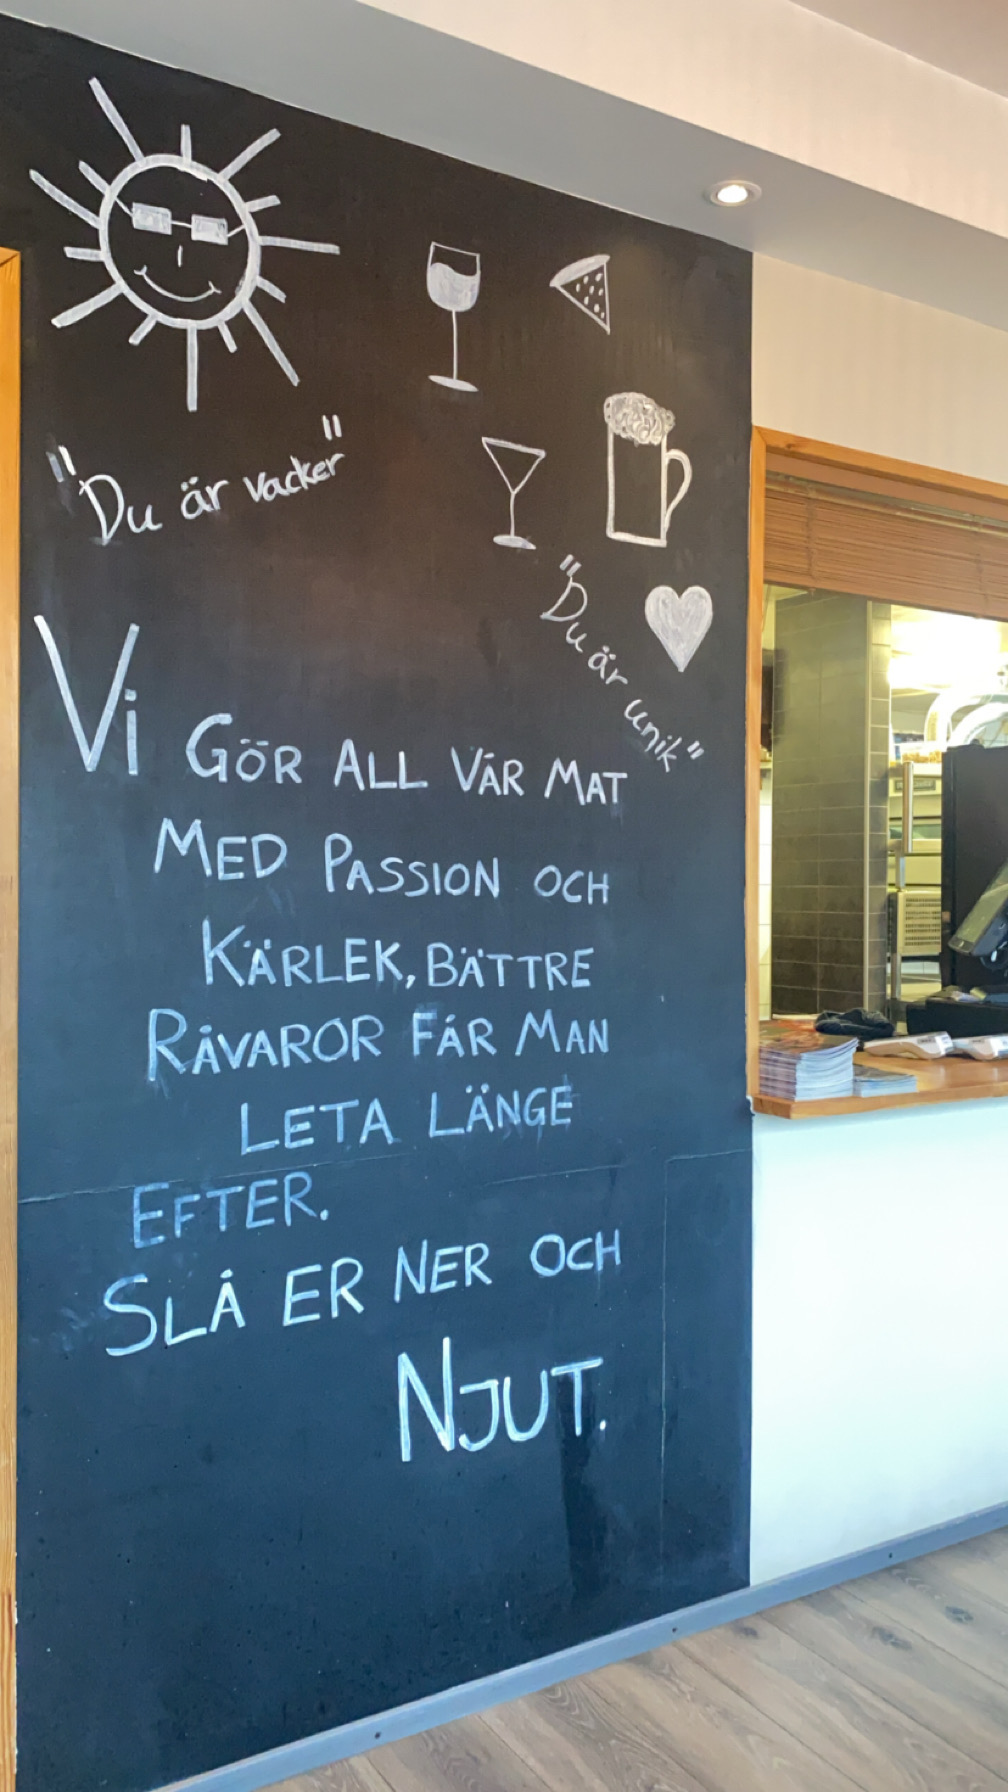 "Du är vacker"
"Du är unik"
Vi GÖR ALL VÅR MAT
MED PASSION OCH
KÄRLEK, BÄTTRE
RÅVAROR FÅR MAN
LETA LÄNGE
EFTER.
SLÅ ER NER OCH
NJUT.